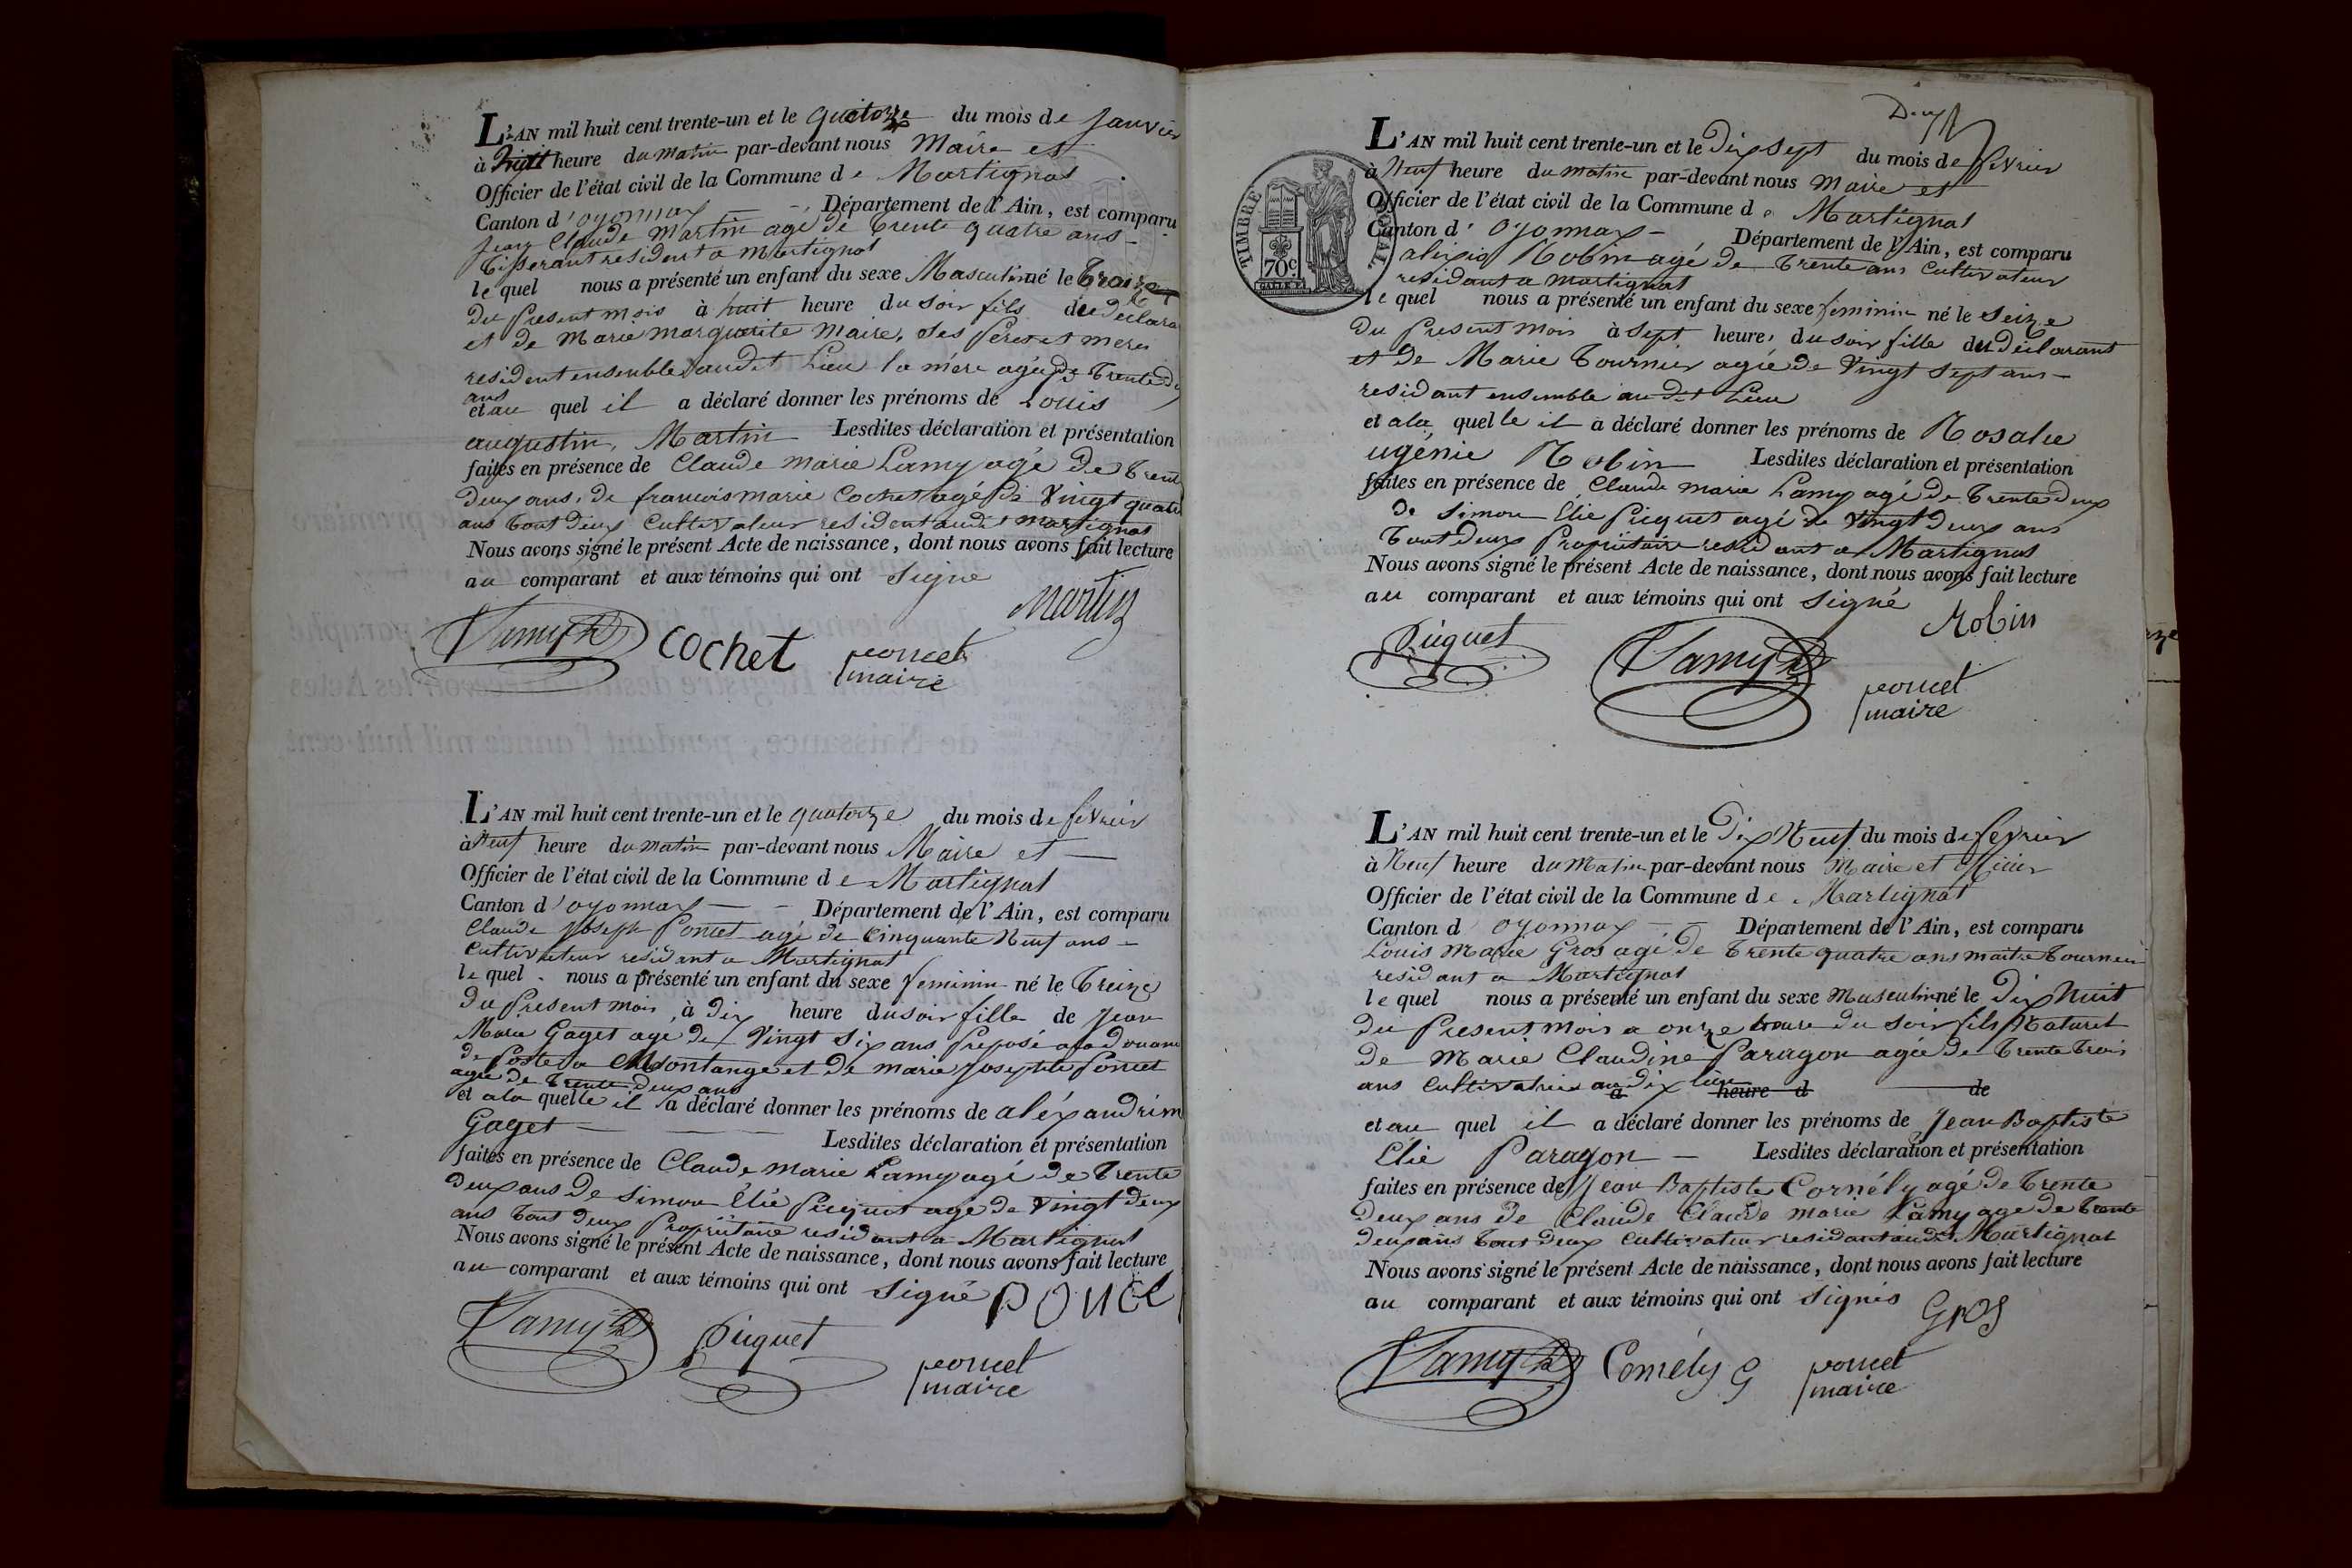 L'AN mil huit cent trente-un et le quatorze du mois de Janvier
à huit heure du matin par-devant nous Maire et
Officier de l'état civil de la Commune de Martignat
Canton d'oyonnax Département de l'Ain, est comparu
Jean Claude Martin agé de trente quatre ans
tisserant resident a Martignat
le quel nous a présenté un enfant du sexe Masculin né le treize
du present mois à huit heure du soir fils du declara
et de Marie marguerite Maire, ses peres et meres
resident ensemble audit Lieu la mére agée de trente
ans
et au quel il a déclaré donner les prénoms de Louis
augustin, Martin Lesdites déclaration et présentation
faites en présence de Claude marie Lamy agé de trent
deux ans, de francois marie Cochet agé de vingt quatre
ans tout deux Cultivateur resident audit martignat
Nous avons signé le présent Acte de naissance, dont nous avons fait lecture
au comparant et aux témoins qui ont signe
Martin
Lamy
Cochet
poncet
maire
L'AN mil huit cent trente-un et le quatorze du mois de fevrier
à Neuf heure du matin par-devant nous Maire et
Officier de l'état civil de la Commune de Martignat
Canton d'oyonnax Département de l'Ain, est comparu
Claude Joseph Poncet agé de cinquante Neuf ans
Cultivateur residant a Martignat
le quel nous a présenté un enfant du sexe feminin né le treize
du present mois à dix heure du soir fille de Jean
Marie Gaget age de Vingt six ans préposé a la douane
de poste a Montange et de marie Josephte Poncet
agée de trente deux ans
et a la quelle il a déclaré donner les prénoms de aléxandrin
Gaget Lesdites déclaration et présentation
faites en présence de Claude marie Lamy agé de trente
deux ans de simon Élie Piquet age de vingt deux
ans tout deux Propriétaire residant a Martignat
Nous avons signé le présent Acte de naissance, dont nous avons fait lecture
au comparant et aux témoins qui ont signé
poncet
Lamy
Piquet
poncet
maire
Deux
L'AN mil huit cent trente-un et le dix sept du mois de fevrier
à Neuf heure du matin par-devant nous maire et
Officier de l'état civil de la Commune de Martignat
Canton d'oyonnax Département de l'Ain, est comparu
TIMBRE ROYAL
70c
alixis Robin agé de trente ans Cultivateur
residant a martignat
le quel nous a présenté un enfant du sexe feminin né le seize
du present mois à sept heure, du soir fille du déclarant
et de Marie Tournier agée de Vingt sept ans
residant ensemble audit Lieu
et a la quelle il a déclaré donner les prénoms de Rosalie
ugénie Robin Lesdites déclaration et présentation
faites en présence de Claude marie Lamy agé de trente deux
de simon Élie Picquet agé de Vingt deux ans
tout deux propriétaire residant a Martignat
Nous avons signé le présent Acte de naissance, dont nous avons fait lecture
au comparant et aux témoins qui ont signé
Robin
Piquet
Lamy
poncet
maire
L'AN mil huit cent trente-un et le Dix Neuf du mois de fevrier
à Neuf heure du Matin par-devant nous Maire et officier
Officier de l'état civil de la Commune de Martignat
Canton d oyonnax Département de l'Ain, est comparu
Louis Marie Gros agé de trente quatre ans maitre tourneur
residant a Martignat
le quel nous a présenté un enfant du sexe Masculin né le dix huit
du present mois a onze heure du soir fils Naturel
de Marie Claudine Paragon agée de trente trois
ans Cultivatrice audit lieu
à heure d de
et au quel il a déclaré donner les prénoms de Jean Baptiste
Élie Paragon Lesdites déclaration et présentation
faites en présence de Jean Baptiste Cornély agé de trente
deux ans de Claude Claude marie Lamy age de trente
deux ans tout deux Cultivateur residant audit Martignat
Nous avons signé le présent Acte de naissance, dont nous avons fait lecture
au comparant et aux témoins qui ont signés
Gros
Lamy
Cornély G
poncet
maire